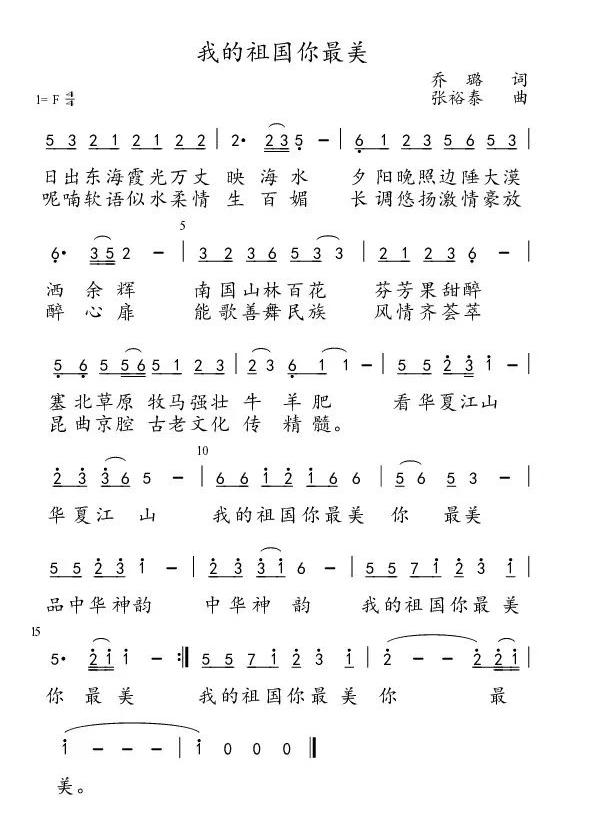 我的祖国你最美
乔 璐 词
1= F 4/4
张裕泰 曲
5 3 2 1 2 1 2 2 | 2· 2 3 5 − | 6 1 2 3 5 6 5 3 |
日出东海霞光万丈 映 海 水 夕 阳晚照边陲大漠
呢喃软语似水柔情 生 百 媚 长 调悠扬激情豪放
5
6· 3 5 2 − | 3 2 3 6 5 3 3 | 2 1 2 3 6 − |
洒 余 辉 南国山林百花 芬芳果甜醉
醉 心 扉 能歌善舞民族 风情齐荟萃
5 6 5 5 6 5 1 2 3 | 2 3 6 1 1 − | 5 5 2 3 1 |
塞北草原 牧马强壮 牛 羊 肥 看 华夏江山
昆曲京腔 古老文化 传 精 髓。
10
2 3 3 6 5 − | 6 6 1 2 1 6 6 | 5 6 5 3 − |
华 夏 江 山 我的祖国你最美 你 最美
5 5 2 3 1 − | 2 3 3 1 6 − | 5 5 7 1 2 3 1 |
品中华神韵 中华神 韵 我的祖国你最 美
15
5· 2 1 1 − :| 5 5 7 1 2 3 1 | 2 − − 2 2 1 |
你 最 美 我的祖国你最美 你 最
1 − − − | 1 0 0 0 ‖
美。